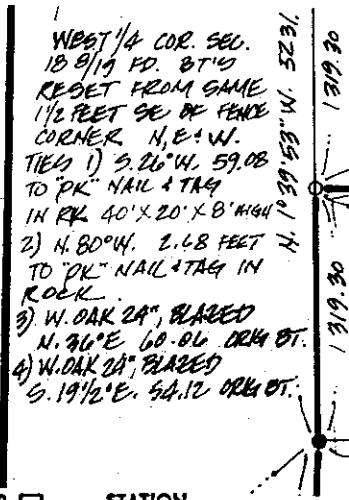 WEST 1/4 COR. SEC.
18 8/19 FD. BT'S
RESET FROM SAME
1 1/2 FEET SE OF FENCE
CORNER N, E & W.
TIES 1) S. 26° W. 59.08
TO "PK" NAIL & TAG
IN RK 40' X 20' X 8' HIGH
2) N. 80° W. 2.68 FEET
TO "PK" NAIL & TAG IN
ROCK.
3) W. OAK 24", BLAZED
N. 36° E 60.06 ORIG BT.
4) W. OAK 24", BLAZED
S. 19 1/2° E. 54.12 ORIG BT.
N. 1° 39' 53" W. 5231.
1319.30
1319.30
STATION